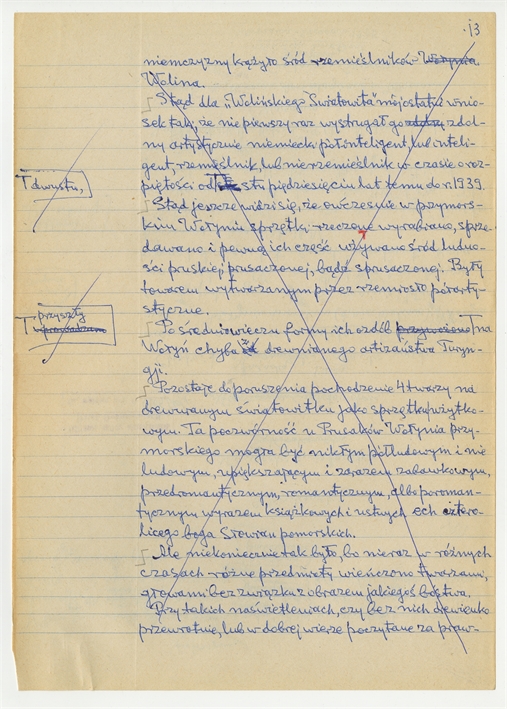 13
niemczyzny krążyło śród rzemieślników Wołynia
Wolina.
Stąd dla „Wolińskiego Światowita" mój ostatni wnio-
sek taki, że nie pierwszy raz wystrugał go zdol-
ny artystycznie niemiecki półinteligent, lub inteli-
gent, rzemieślnik, lub nierzemieślnik w czasie o roz-
Tdwustu,
piętości od stu pięćdziesięciu lat temu do r. 1939.
Stąd jeszcze widzi się, że ówcześnie w przymors-
kim Wołyniu sprzętki rzeczone wyrabiano, sprze-
dawano i pewną ich część używano śród ludno-
ści pruskiej prusaczonej, bądź sprusaczonej. Były
towarem wytwarzanym przez rzemiosło półarty-
styczne.
przyszły
T wprowadzono
Po średniowieczu formy ich ozdób przywieziono T na
Wołyń chyba z drewnianego artizaństwa Turyn-
gji.
Pozostaje do poruszenia pochodzenie 4 twarzy na
drewnianym światowitku jako sprzętku użytko-
wym. Ta poczwórność u Prusaków Wołynia przy-
morskiego mogła być nikłym półludowym i nie
ludowym, upiększającym i zarazem zabawkowym,
przedromantycznym, romantycznym, albo poroman-
tycznym wyrazem książkowych i ustnych ech cztero-
licego boga Słowian pomorskich.
Ale niekoniecznie tak było, bo nieraz w różnych
czasach różne przedmioty wieńczono twarzami,
głowami bez związku z obrazem jakiegoś bóstwa.
Przy takich naświetleniach, czy bez nich drewienko
przewrotnie, lub w dobrej wierze poczytane za praw-